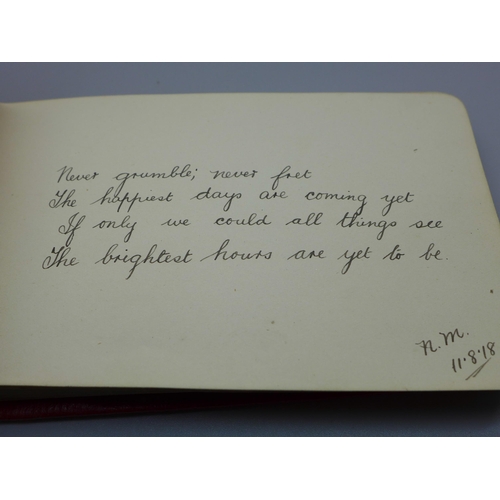 Never grumble; never fret
The happiest days are coming yet
If only we could all things see
The brightest hours are yet to be.
N.M.
11.8.18